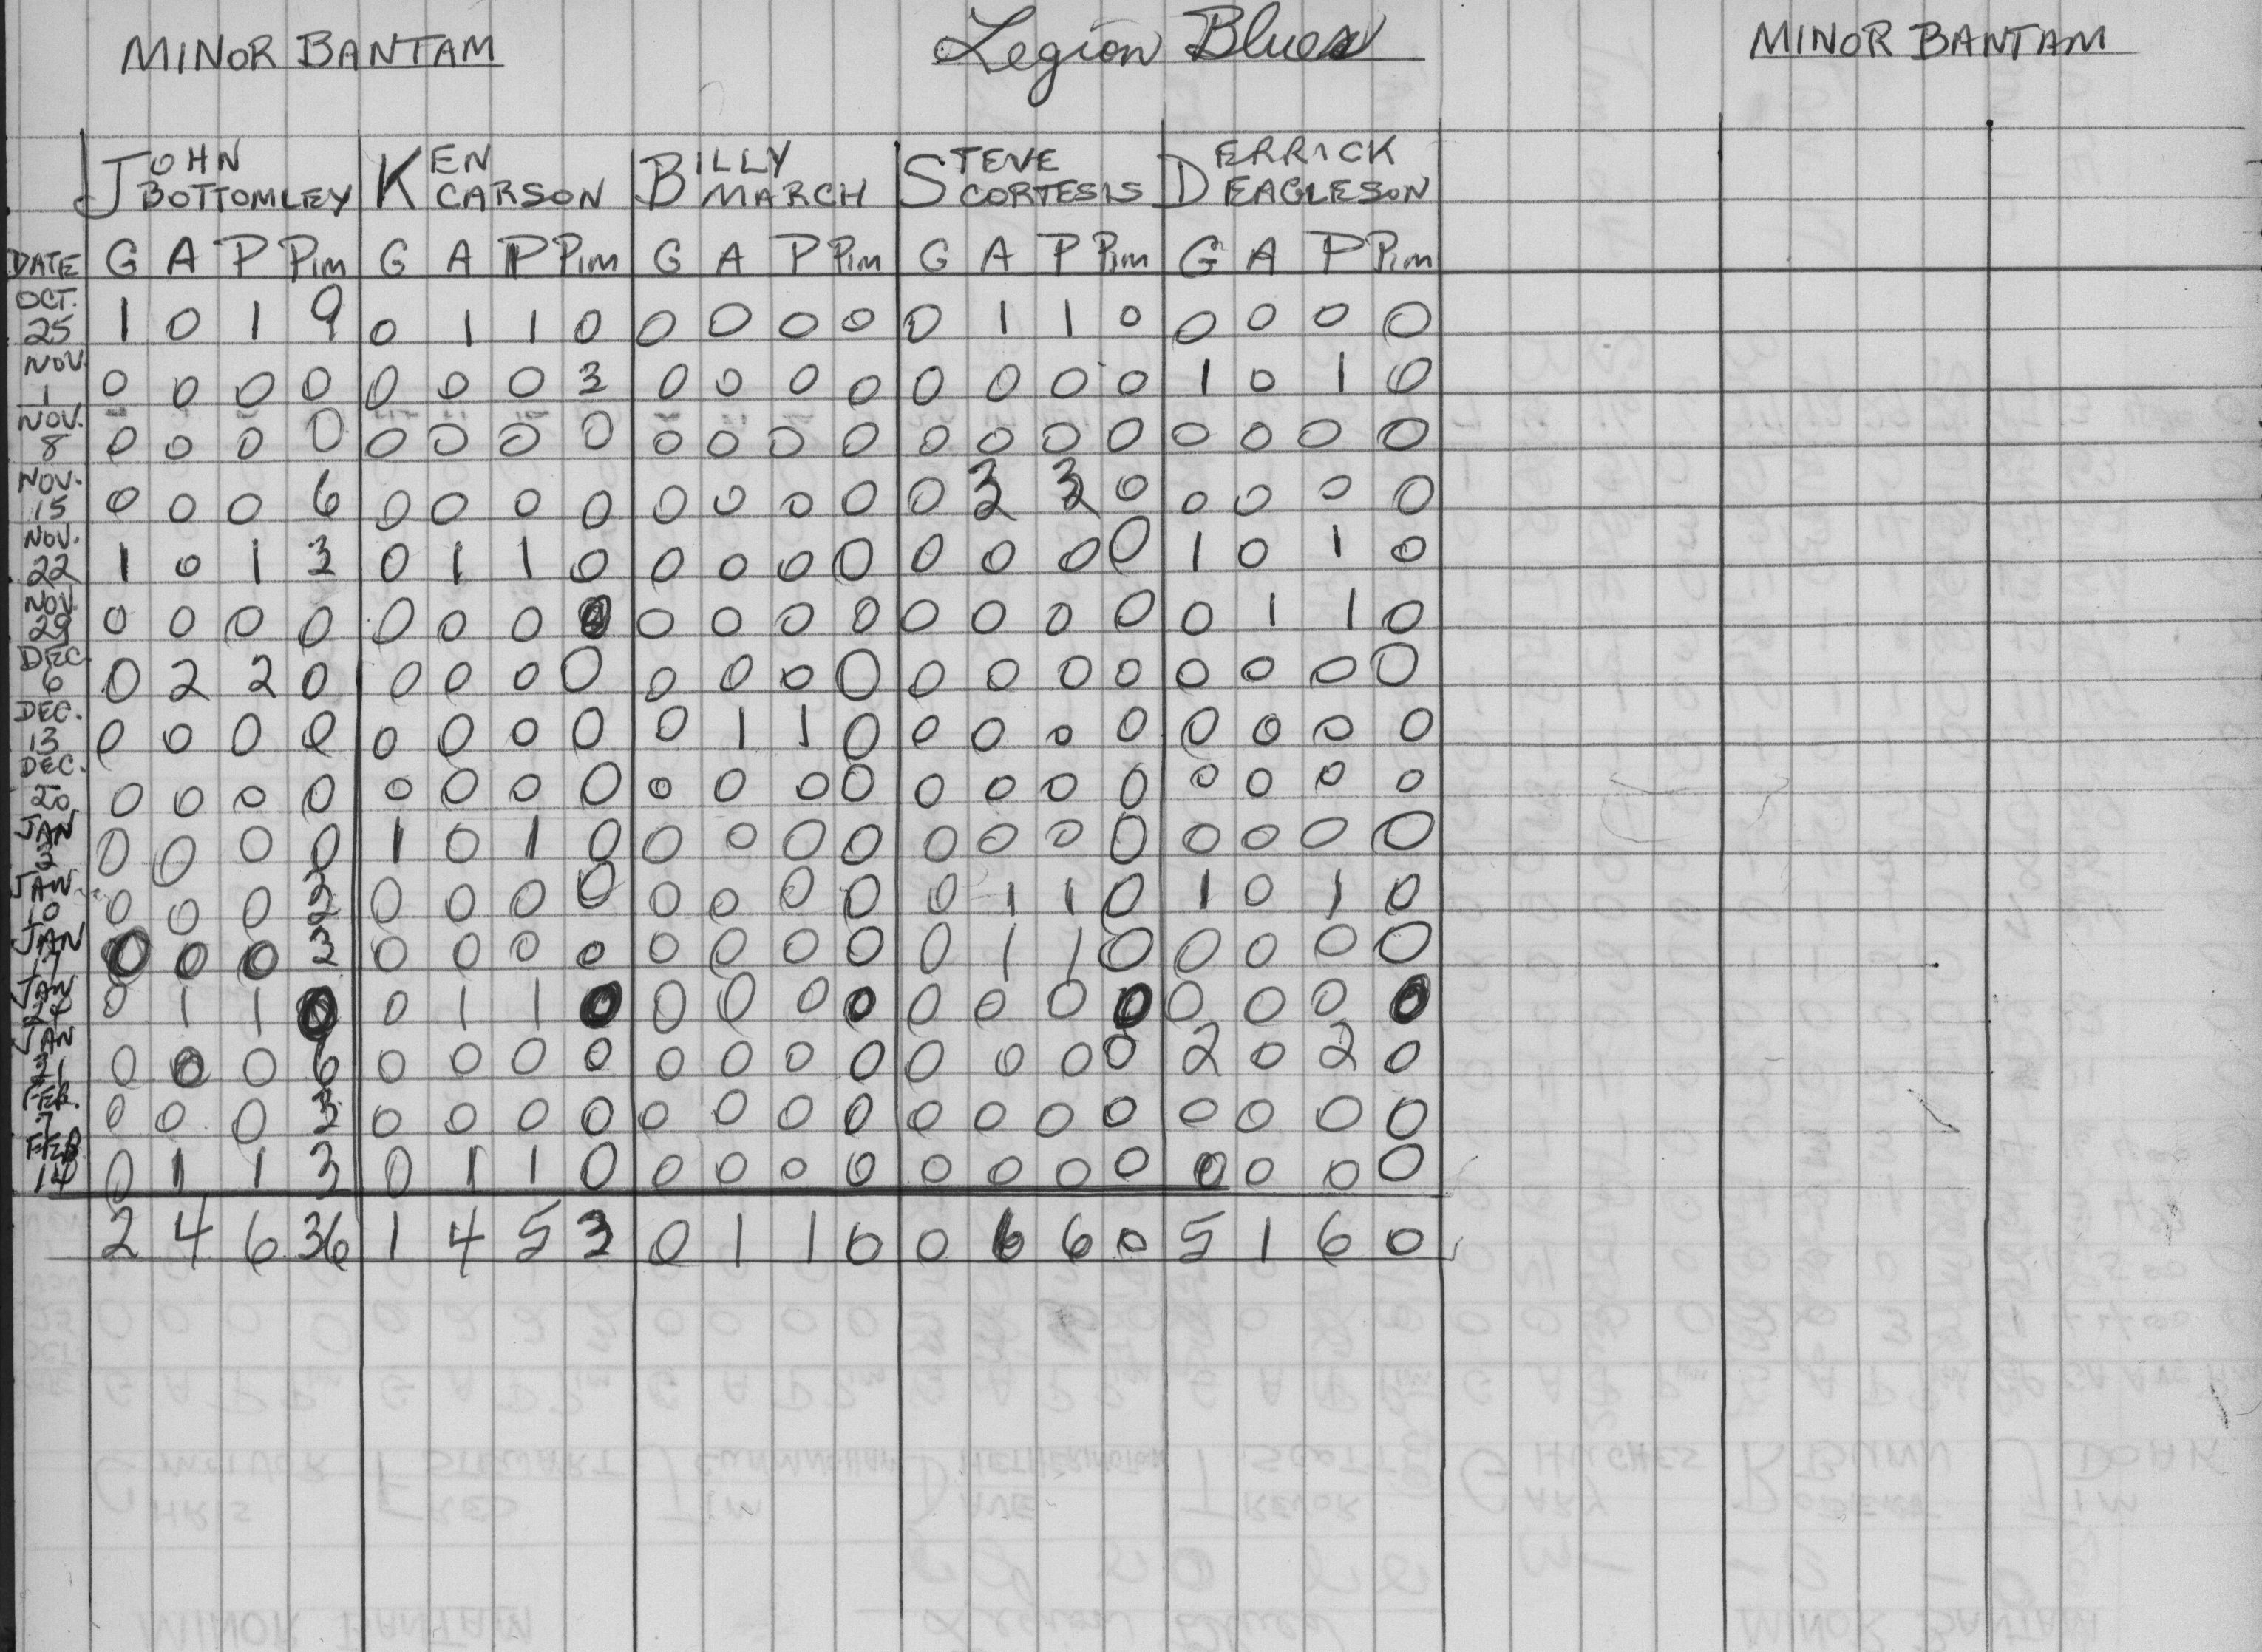 MINOR BANTAM Legion Blues MINOR BANTAM
JOHN BOTTOMLEY KEN CARSON BILLY MARCH STEVE CORTESIS DERRICK EAGLESON
DATE G A P Pim G A P Pim G A P Pim G A P Pim G A P Pim
OCT. 25 1 0 1 9 0 1 1 0 0 0 0 0 0 1 1 0 0 0 0 0
NOV. 1 0 0 0 0 0 0 0 3 0 0 0 0 0 0 0 0 1 0 1 0
NOV. 8 0 0 0 0 0 0 0 0 0 0 0 0 0 0 0 0 0 0 0 0
NOV. 15 0 0 0 6 0 0 0 0 0 0 0 0 0 3 3 0 0 0 0 0
NOV. 22 1 0 1 3 0 1 1 0 0 0 0 0 0 0 0 0 1 0 1 0
NOV. 29 0 0 0 0 0 0 0 0 0 0 0 0 0 0 0 0 0 1 1 0
DEC. 6 0 2 2 0 0 0 0 0 0 0 0 0 0 0 0 0 0 0 0 0
DEC. 13 0 0 0 0 0 0 0 0 0 1 1 0 0 0 0 0 0 0 0 0
DEC. 20 0 0 0 0 0 0 0 0 0 0 0 0 0 0 0 0 0 0 0 0
JAN 3 0 0 0 0 1 0 1 0 0 0 0 0 0 0 0 0 0 0 0 0
JAN. 10 0 0 0 2 0 0 0 0 0 0 0 0 0 1 1 0 1 0 1 0
JAN 17 0 0 0 3 0 0 0 0 0 0 0 0 0 1 1 0 0 0 0 0
JAN 24 0 1 1 0 0 1 1 0 0 0 0 0 0 0 0 0 0 0 0 0
JAN 31 0 0 0 6 0 0 0 0 0 0 0 0 0 0 0 0 2 0 2 0
FEB. 7 0 0 0 3 0 0 0 0 0 0 0 0 0 0 0 0 0 0 0 0
FEB 14 0 1 1 3 0 1 1 0 0 0 0 0 0 0 0 0 0 0 0 0
2 4 6 36 1 4 5 3 0 1 1 0 0 6 6 0 5 1 6 0